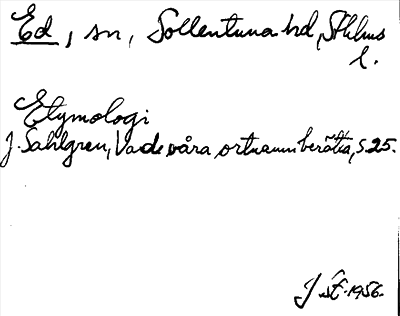 Ed, sn, Sollentuna hd, Sthlms
l.
Etymologi
J. Sahlgren, Vad våra ortnamn berätta, s 25.
J st. 1956.